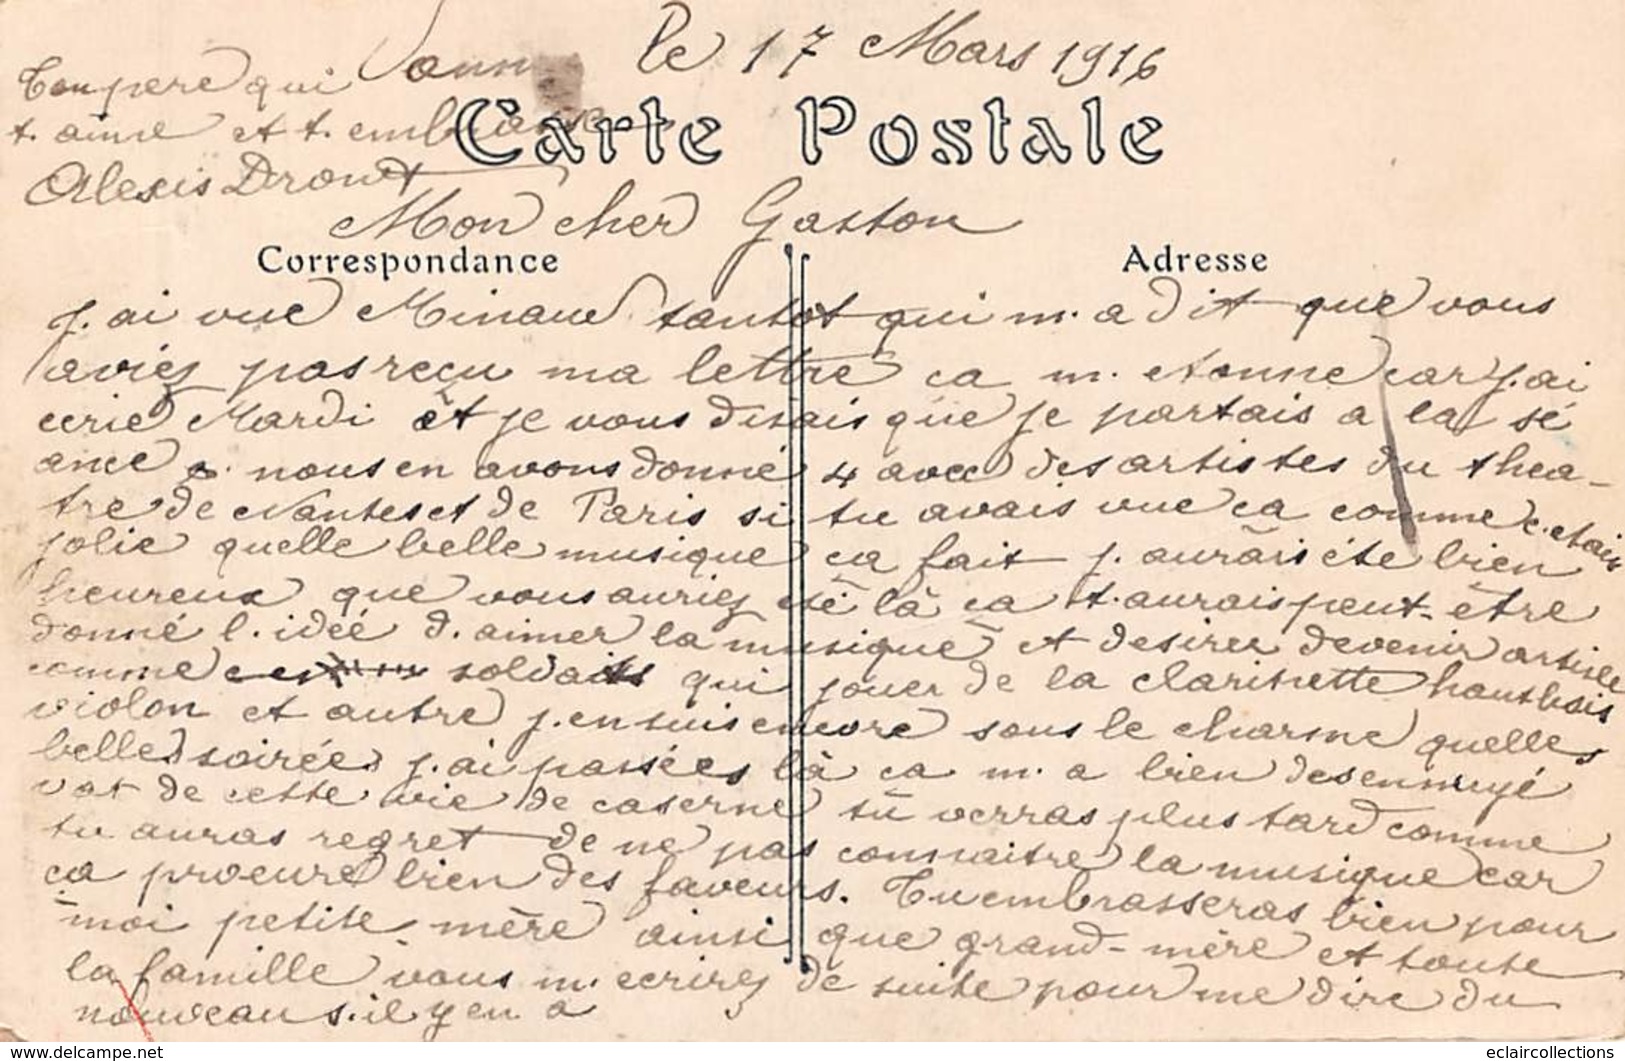 le 17 Mars 1916
Ton pere qui
t. aime et t. embrasse
Alexis Drouet
Carte Postale
Mon cher Gaston
Correspondance
Adresse
j. ai vue Minaud tantot qui m. a dit que vous
aviez pas reçu ma lettre ca m. etonne car j. ai
ecrie Mardi et je vous disais que je partais a la sé
ance nous en avons donné 4 avec des artistes du thea-
tre de Nantes et de Paris si tu avais vue ca comme c. etais
jolie quelle belle musique ca fait j. aurais éte bien
heureux que vous auriez eté là ca t. aurais peut-être
donné l. idée d. aimer la musique et desirer devenir artiste
comme soldats qui jouer de la clarinette hautbois
violon et autre j. en suis encore sous le charme quelles
belles soirées j. ai passées là ca m. a bien desennuyé
de cette vie de caserne tu verras plus tard comme
tu auras regret de ne pas connaitre la musique car
ca procure bien des faveurs. Tu embrasseras bien pour
moi petite mère ainsi que grand-mère et toute
la famille vous m. ecrirez de suite pour me dire du
nouveau s. il y en a
Tous droits réservés pour tous pays
eclaircollections